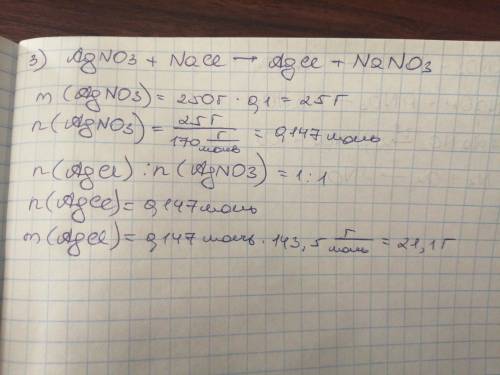 3) AgNO3 + NaCl → AgCl + NaNO3
m(AgNO3) = 250г · 0,1 = 25г
n(AgNO3) = 25г / 170 г/моль = 0,147 моль
n(AgCl) : n(AgNO3) = 1:1
n(AgCl) = 0,147 моль
m(AgCl) = 0,147 моль · 143,5 г/моль = 21,1г